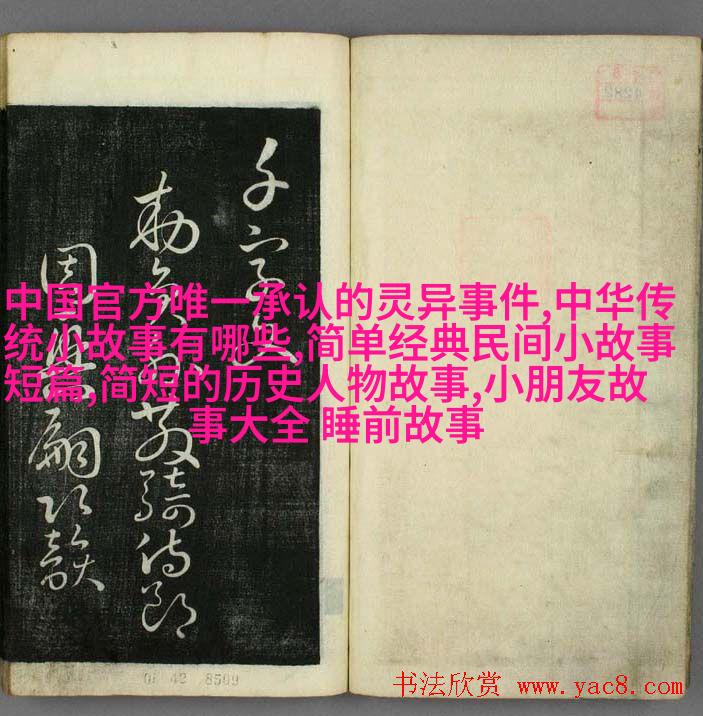 千字文
勅員外散騎侍郎
周興嗣次韻
中国官方唯一承认的灵异事件,中华传
统小故事有哪些,简单经典民间小故事
短篇,简短的历史人物故事,小朋友故
事大全 睡前故事
4282
01 42 8509
书法欣赏 www.yac8.com